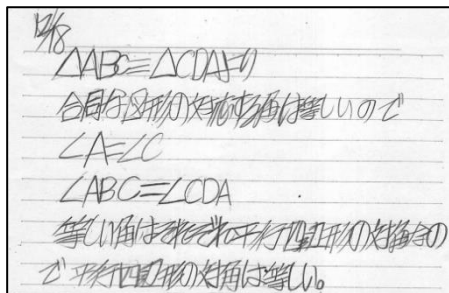 12/18
△ABC≡△CDAより
合同な図形の対応する角は等しいので
∠A=∠C
∠ABC=∠CDA
等しい角はそれぞれ平行四辺形の対角なの
で平行四辺形の対角は等しい。